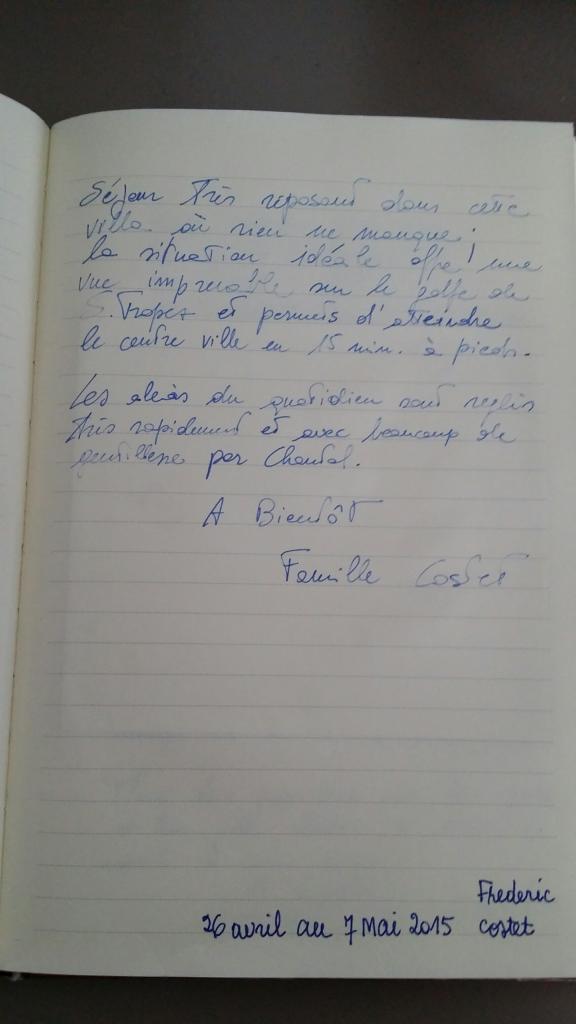 Séjour très reposant dans cette
villa où rien ne manque ;
la situation idéale offre une
vue imprenable sur le golfe de
S. Tropez et permets d'atteindre
le centre ville en 15 min. à pieds.
Les aléas du quotidien sont réglés
très rapidement et avec beaucoup de
gentillesse par Chantal.
A Bientôt
Famille Costet
Frederic
26 avril au 7 Mai 2015 Costet